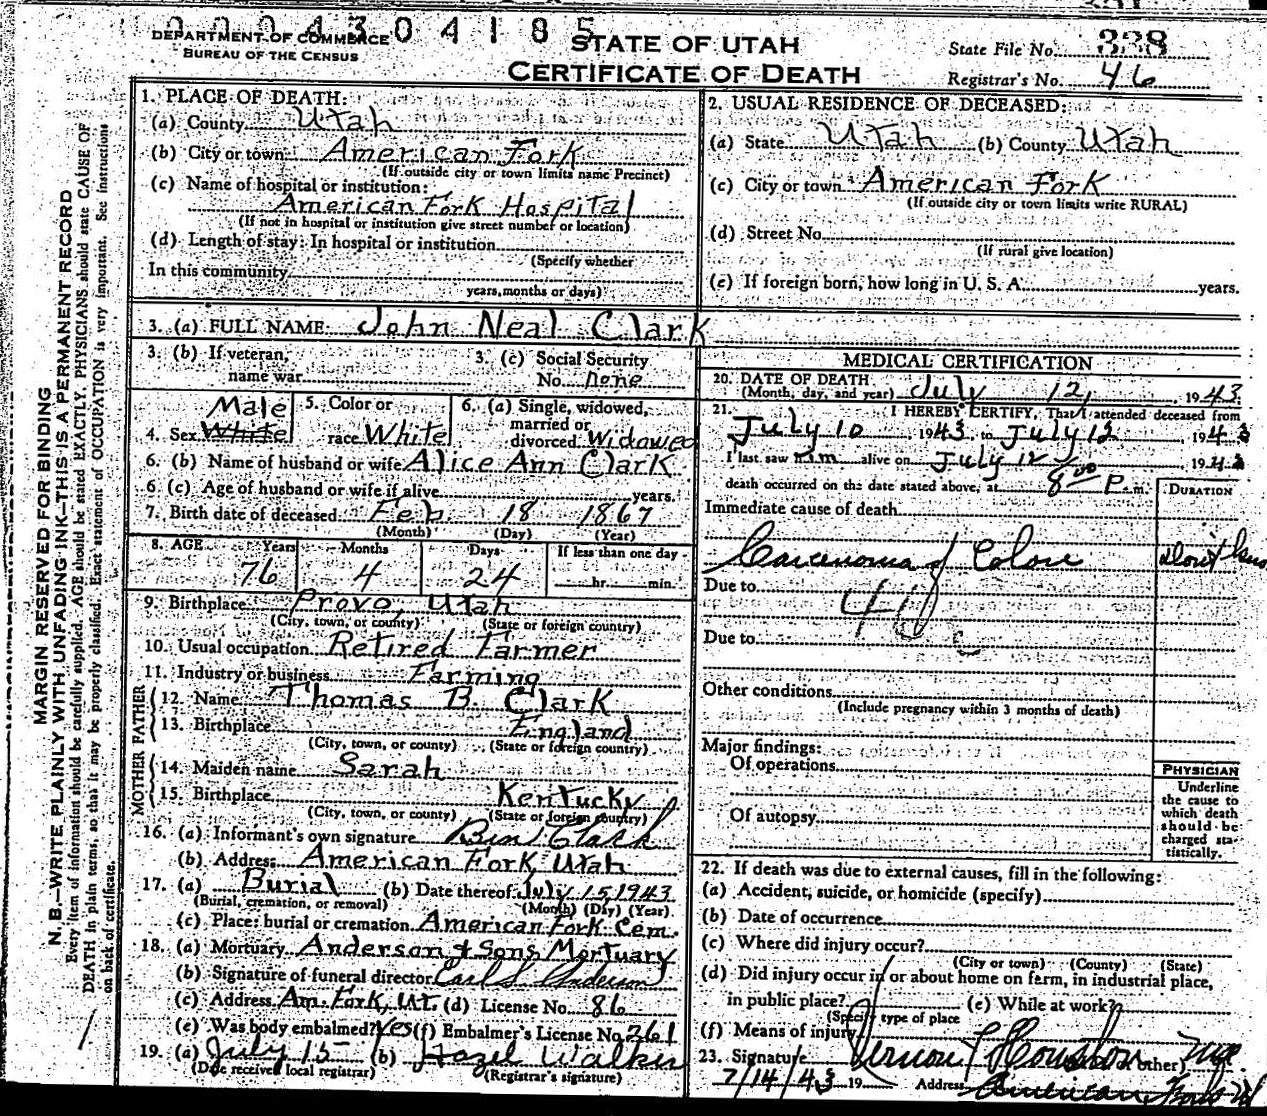 0004304185
DEPARTMENT OF COMMERCE
BUREAU OF THE CENSUS
STATE OF UTAH
CERTIFICATE OF DEATH
State File No. 338
Registrar's No. 46
MARGIN RESERVED FOR BINDING
N. B.—WRITE PLAINLY WITH UNFADING INK—THIS IS A PERMANENT RECORD
Every item of information should be carefully supplied. AGE should be stated EXACTLY. PHYSICIANS should state CAUSE OF
DEATH in plain terms, so that it may be properly classified. Exact statement of OCCUPATION is very important. See instructions
on back of certificate.
1. PLACE OF DEATH:
(a) County Utah
(b) City or town American Fork
(If outside city or town limits name Precinct)
(c) Name of hospital or institution:
American Fork Hospital
(If not in hospital or institution give street number or location)
(d) Length of stay: In hospital or institution
(Specify whether
In this community
years, months or days)
2. USUAL RESIDENCE OF DECEASED:
(a) State Utah (b) County Utah
(c) City or town American Fork
(If outside city or town limits write RURAL)
(d) Street No.
(If rural give location)
(e) If foreign born, how long in U. S. A. years.
3. (a) FULL NAME: John Neal Clark
3. (b) If veteran,
name war
3. (c) Social Security
No. none
4. Sex Male White
5. Color or
race White
6. (a) Single, widowed,
married or
divorced Widowed
6. (b) Name of husband or wife Alice Ann Clark
6. (c) Age of husband or wife if alive years.
7. Birth date of deceased Feb 18 1867
(Month) (Day) (Year)
8. AGE Years Months Days If less than one day
76 4 24 hr. min.
9. Birthplace Provo, Utah
(City, town, or county) (State or foreign country)
10. Usual occupation Retired Farmer
11. Industry or business Farming
FATHER
12. Name Thomas B. Clark
13. Birthplace England
(City, town, or county) (State or foreign country)
MOTHER
14. Maiden name Sarah
15. Birthplace Kentucky
(City, town, or county) (State or foreign country)
16. (a) Informant's own signature Ben Clark
(b) Address American Fork, Utah
17. (a) Burial (b) Date thereof July 15, 1943
(Burial, cremation, or removal) (Month) (Day) (Year)
(c) Place: burial or cremation American Fork Cem.
18. (a) Mortuary Anderson & Sons Mortuary
(b) Signature of funeral director Earl S Anderson
(c) Address Am. Fork, Ut. (d) License No. 86
(e) Was body embalmed? Yes (f) Embalmer's License No. 261
19. (a) July 15 (b) Hazel Walker
(Date received local registrar) (Registrar's signature)
MEDICAL CERTIFICATION
20. DATE OF DEATH
(Month, day, and year) July 12, 1943
21. I HEREBY CERTIFY, That I attended deceased from
July 10, 1943, to July 12 1943
I last saw him alive on July 12, 1943
death occurred on the date stated above, at 8:00 P. m.
DURATION
Immediate cause of death
Carcenoma of Colon
Don't know
Due to
Due to
Other conditions
(Include pregnancy within 3 months of death)
Major findings:
Of operations
Of autopsy
PHYSICIAN
Underline
the cause to
which death
should be
charged sta-
tistically.
22. If death was due to external causes, fill in the following:
(a) Accident, suicide, or homicide (specify)
(b) Date of occurrence
(c) Where did injury occur?
(City or town) (County) (State)
(d) Did injury occur in or about home on farm, in industrial place,
in public place? (e) While at work?
(Specify type of place
(f) Means of injury
23. Signature Vernon F Houston or other)
7/14/43 19 Address American Fork